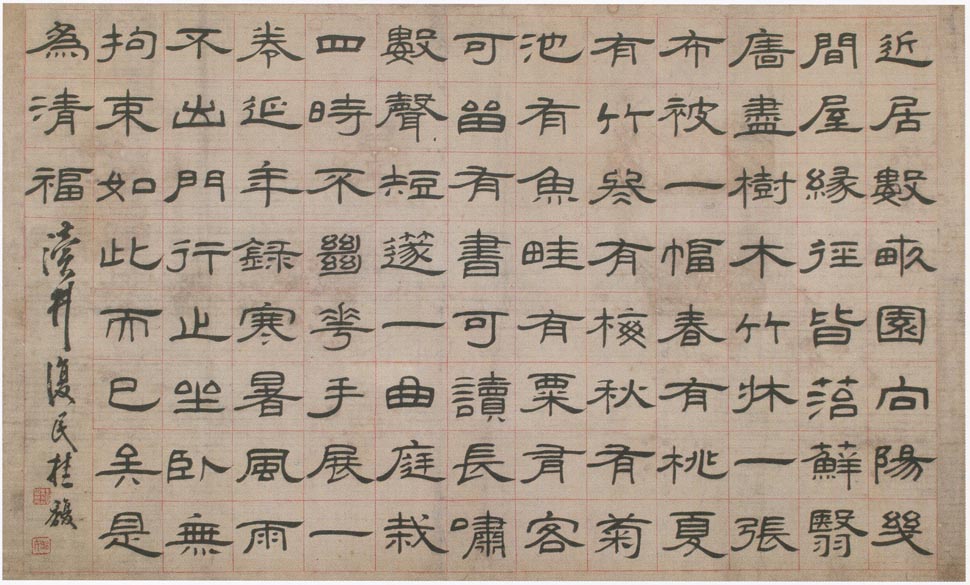 近居數畝園向陽幾
間屋緣徑皆菭蘚翳
盡樹木竹牀一張
布被一幅春有桃夏
有竹冬有梅秋有菊
池有魚畦有粟有客
可留有書可讀長嘯
數聲短篴一曲庭栽
四時不𢇍華手展一
卷延年錄寒暑風雨
不出門行止坐臥無
拘束如此而已矣是
為清福 瀆井復民桂馥